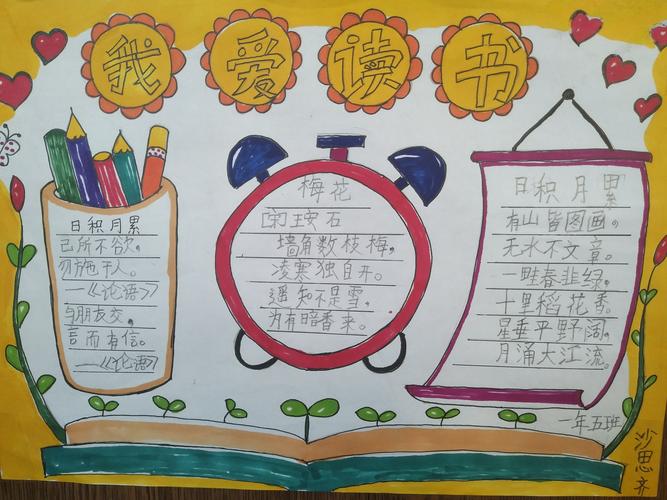 我爱读书
日积月累
己所不欲。
勿施于人。
——《论语》
与朋友交，
言而有信。
——《论语》
梅花
[宋]王安石
墙角数枝梅，
凌寒独自开。
遥知不是雪，
为有暗香来。
日积月累
有山皆图画。
无水不文章。
一畦春韭绿，
十里稻花香。
星垂平野阔，
月涌大江流。
一年五班
沙思齐